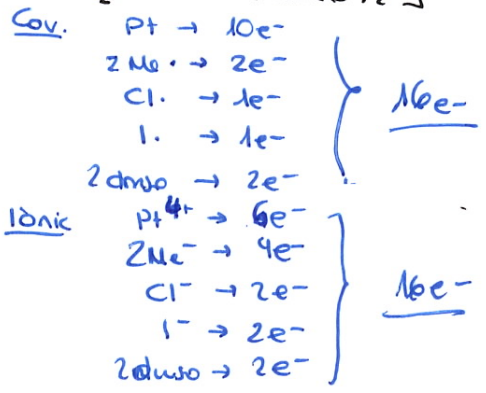 Cov. Pt → 10e-
2 Me • → 2e-
Cl. → 1e-
16e-
I. → 1e-
2 dmso → 2e-
Ionic Pt4+ → 6e-
2Me- → 4e-
Cl- → 2e-
16e-
I- → 2e-
2dmso → 2e-